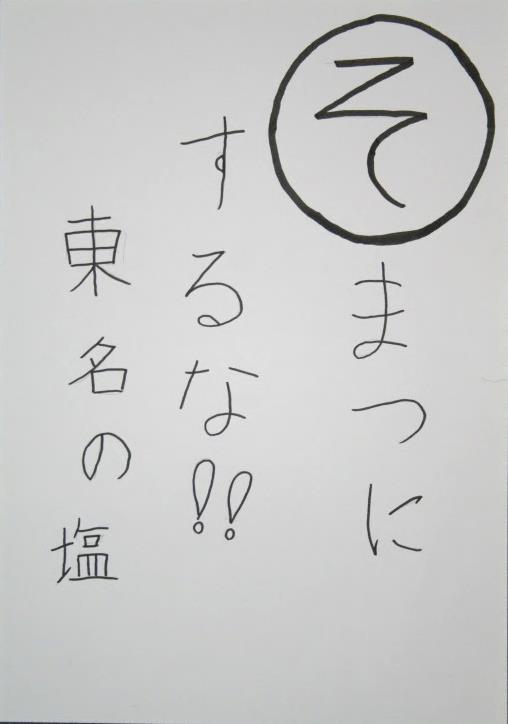 そまつに
するな!!
東名の塩